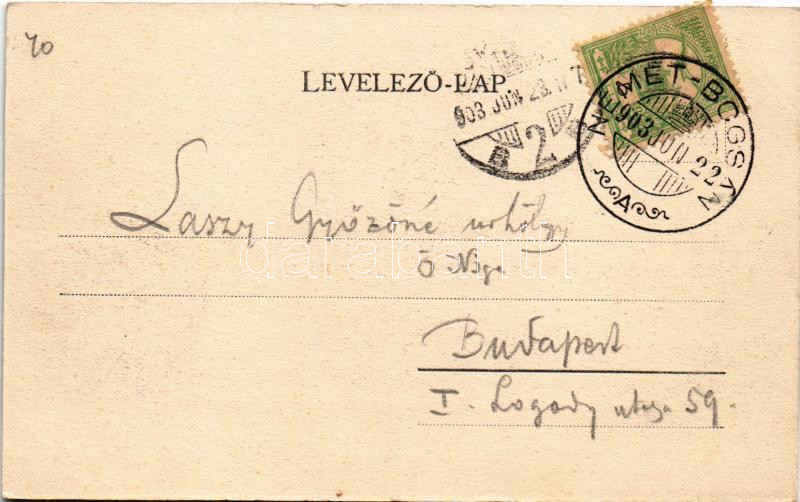 40
LEVELEZŐ-LAP
903 JUN 23
2
NÉMET-BOGSÁN
903 JUN 22
A
Laszy Győzőné urhölgy
Ő Nga
Budapest
I. Logody utcza 59.
darabanth